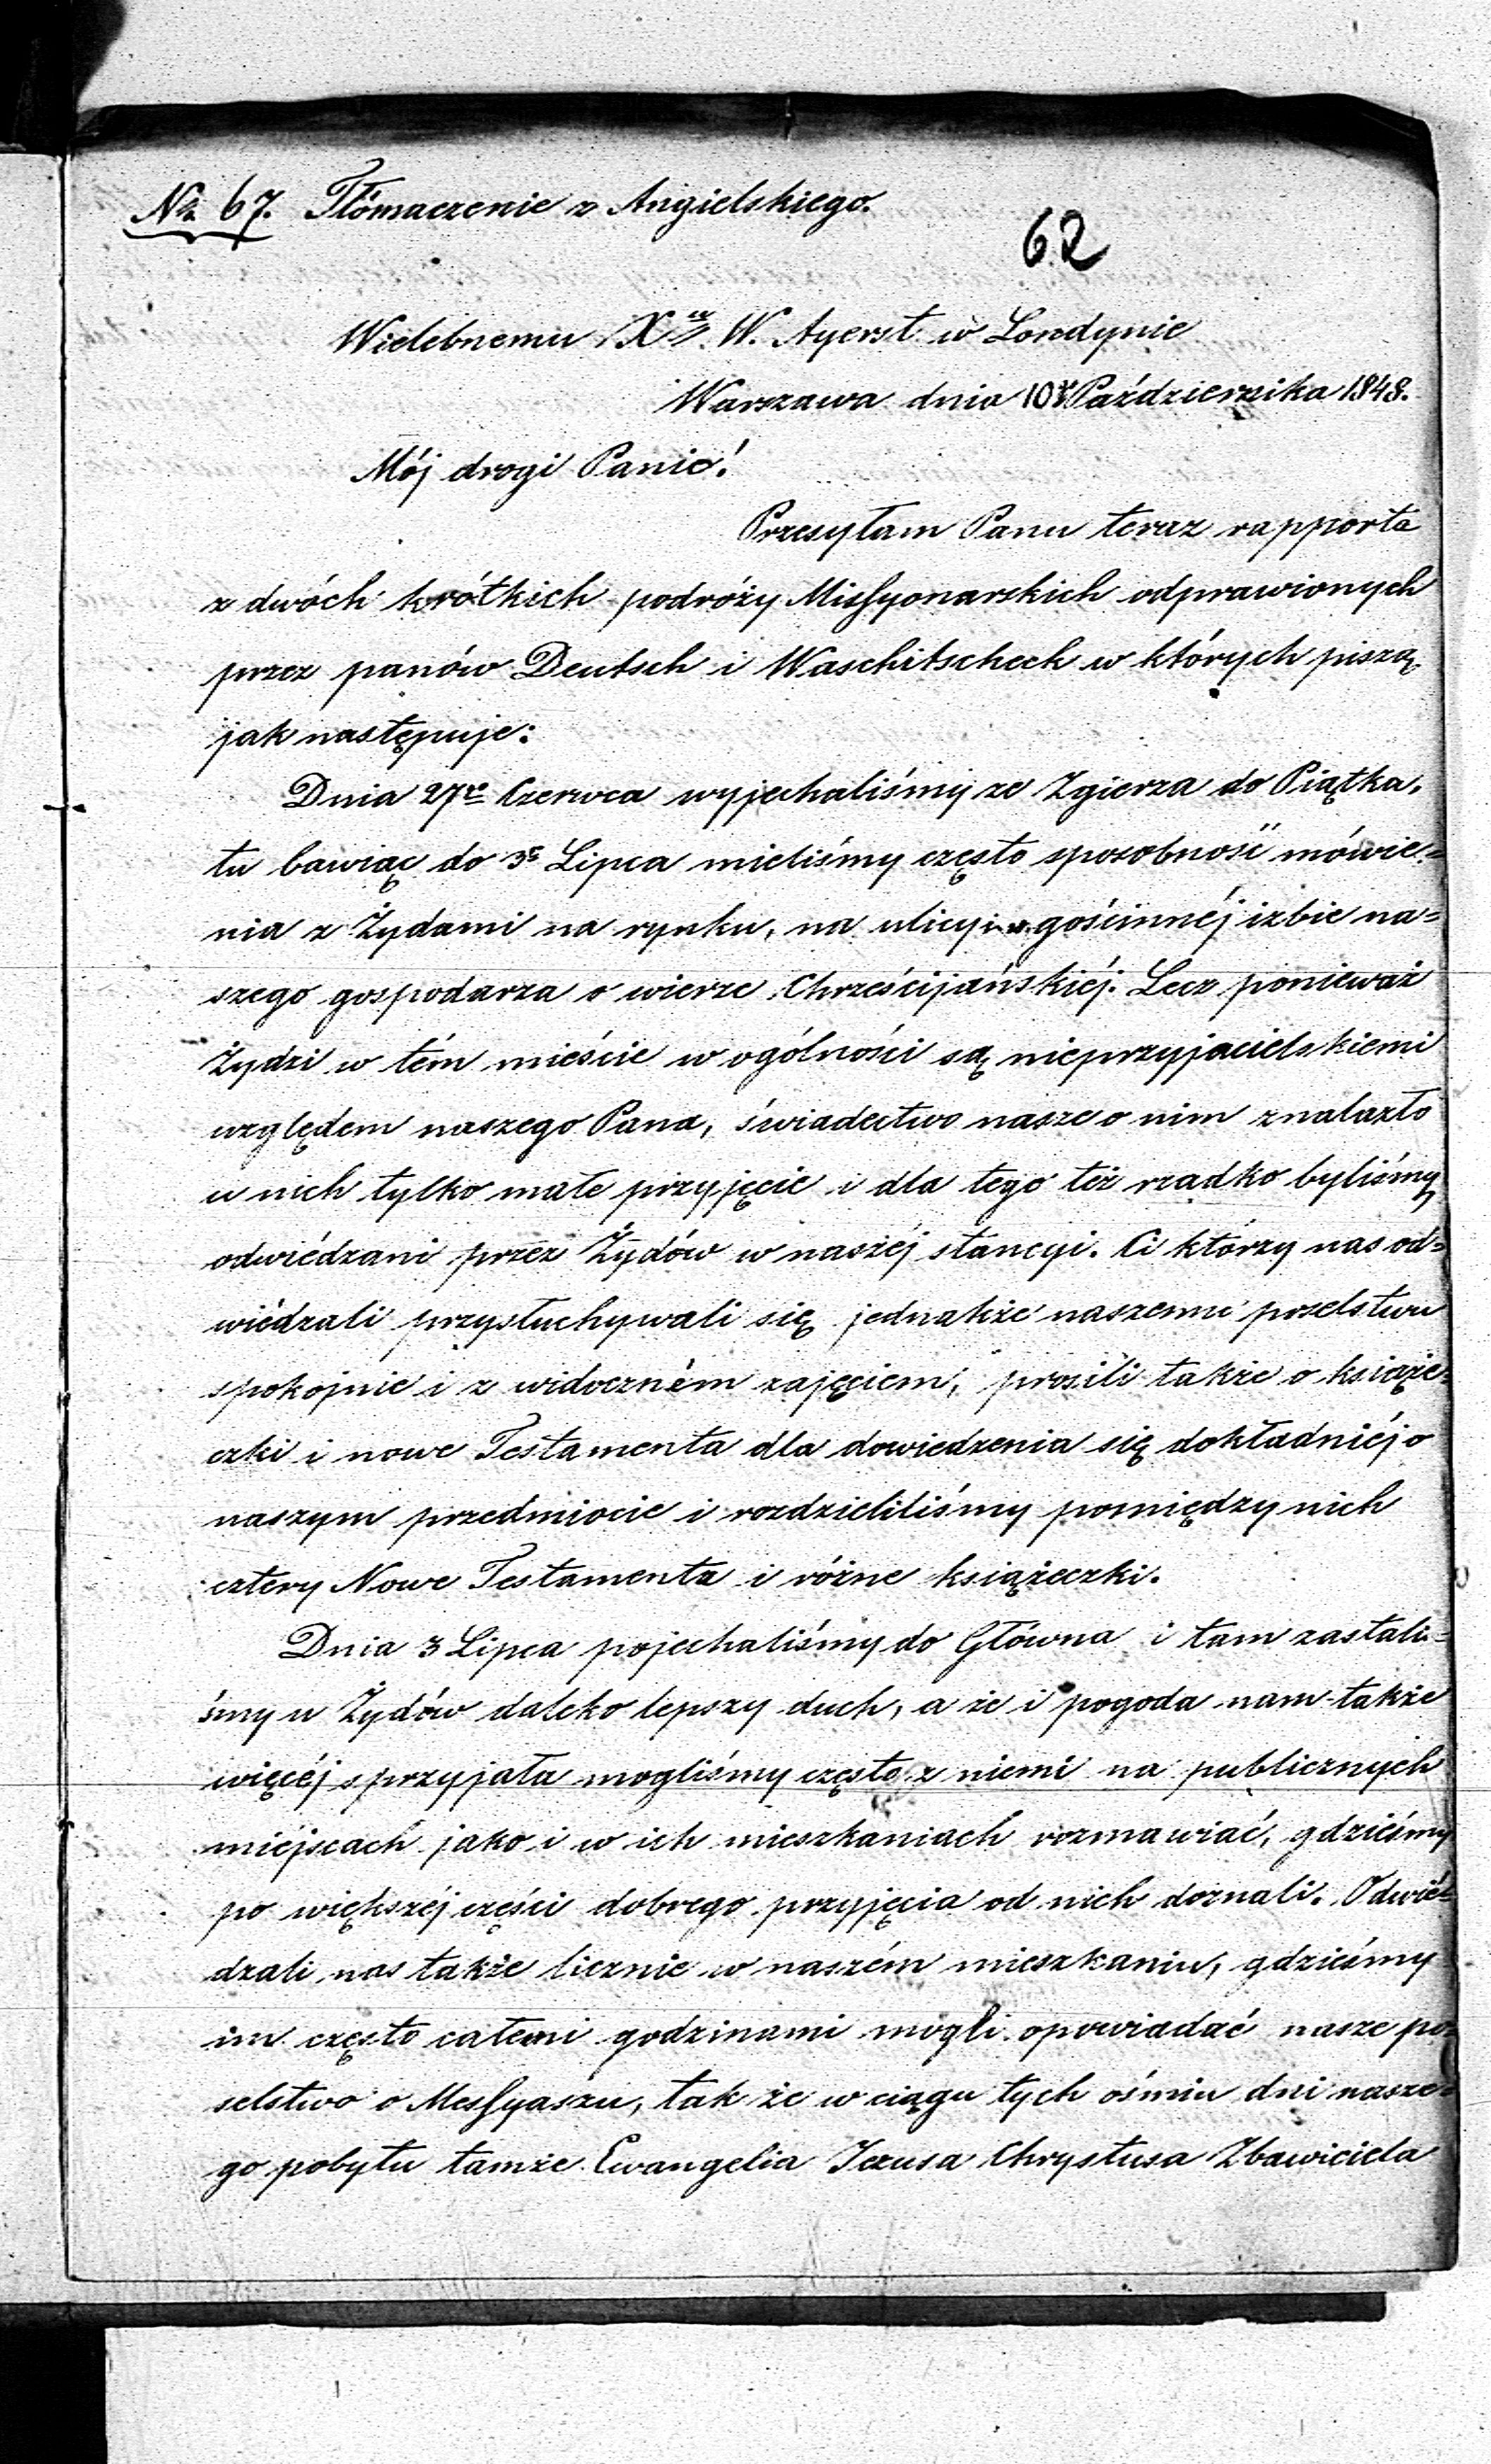 No 67. Tłómaczenie z Angielskiego.
62
Wielebnemu X. W. Ayerst w Londynie
Warszawa dnia 10 Października 1848.
Mój drogi Panie!
Przesyłam Panu teraz rapporta
z dwóch krótkich podróży Missyonarskich odprawionych
przez panów Deutsch i Waschitscheck w których piszą
jak następuje:
Dnia 27go Czerwca wyjechaliśmy ze Zgierza do Piątka,
tu bawiąc do 3go Lipca mieliśmy często sposobność mówie=
nia z Żydami na rynku, na ulicy i w gościnnéj izbie na=
szego gospodarza o wierze Chrześcijańskiéj. Lecz ponieważ
Żydzi w tém mieście w ogólności są nieprzyjacielskiemi
względem naszego Pana, świadectwo nasze o nim znalazło
u nich tylko małe przyjęcie i dla tego też rzadko byliśmy
odwiédzani przez Żydów w naszéj stancyi. Ci którzy nas od=
wiédzali przysłuchywali się jednakże naszemu poselstwu
spokojnie i z widoczném zajęciem, prosili także o książe=
czki i nowe Testamenta dla dowiedzenia się dokładniéj o
naszym przedmiocie i rozdzieliliśmy pomiędzy nich
cztery Nowe Testamenta i różne książeczki.
Dnia 3 Lipca pojechaliśmy do Główna i tam zastali=
śmy u Żydów daleko lepszy duch, a że i pogoda nam także
więcéj sprzyjała mogliśmy często z niemi na publicznych
miéjscach jako i w ich mieszkaniach rozmawiać, gdzieśmy
po większéj części dobrego przyjęcia od nich doznali. Odwié=
dzali nas także licznie w naszém mieszkaniu, gdzieśmy
im często całemi godzinami mogli opowiadać nasze po=
selstwo o Messyaszu, tak że w ciągu tych ośmiu dni nasze=
go pobytu tamże Ewangelia Jezusa Chrystusa Zbawiciela